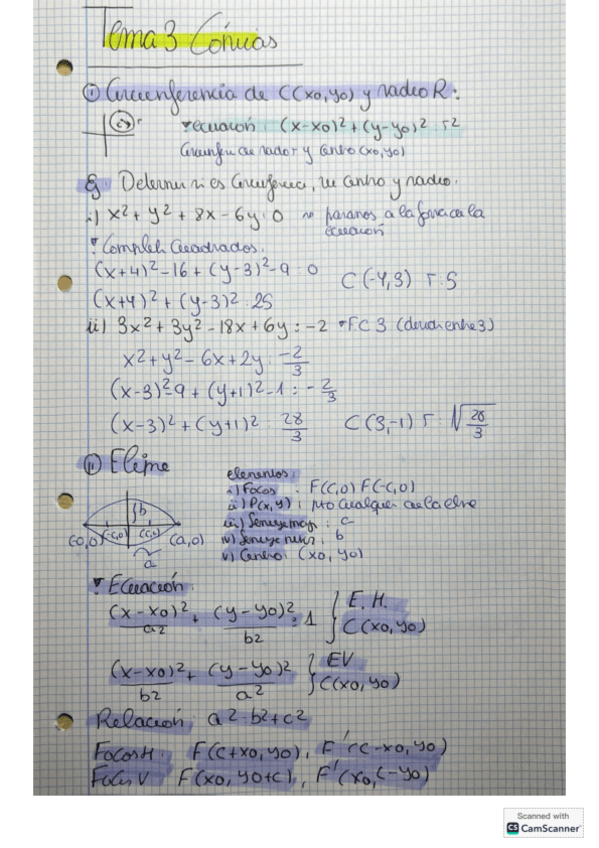 Tema 3 Cónicas
① Circunferencia de C(x0,y0) y radio R:
ecuación: (x-x0)²+(y-y0)²=r²
Circunfe de radio r y centro (x0,y0)
Ej: Determ si es Circunferencia, su centro y radio.
i) x²+y²+8x-6y=0 pasamos a la forma de la
ecuación
Completo Cuadrados.
(x+4)²-16+(y-3)²-9=0
C(-4,3) r=5
(x+4)²+(y-3)²=25
ii) 3x²+3y²-18x+6y=-2 FC 3 (dividir entre 3)
x²+y²-6x+2y=-2/3
(x-3)²-9+(y+1)²-1=-2/3
(x-3)²+(y+1)²=28/3 C(3,-1) r=√28/3
② Elipse
elementos:
i) Focos: F(c,0) F(-c,0)
ii) P(x,y): pto cualquier de la elipse
iii) Semieje mayor: a
iv) Semieje menor: b
v) Centro: (x0,y0)
b
(-c,0) (c,0)
(a,0)
a
Ecuación:
(x-x0)²/a²+(y-y0)²/b²=1 } E.H. C(x0,y0)
(x-x0)²/b²+(y-y0)²/a² } EV C(x0,y0)
Relación a²=b²+c²
Focos H: F(c+x0,y0), F'(c-x0,y0)
Focos V F(x0,y0+c), F'(x0,c-y0)
Scanned with
CS CamScanner